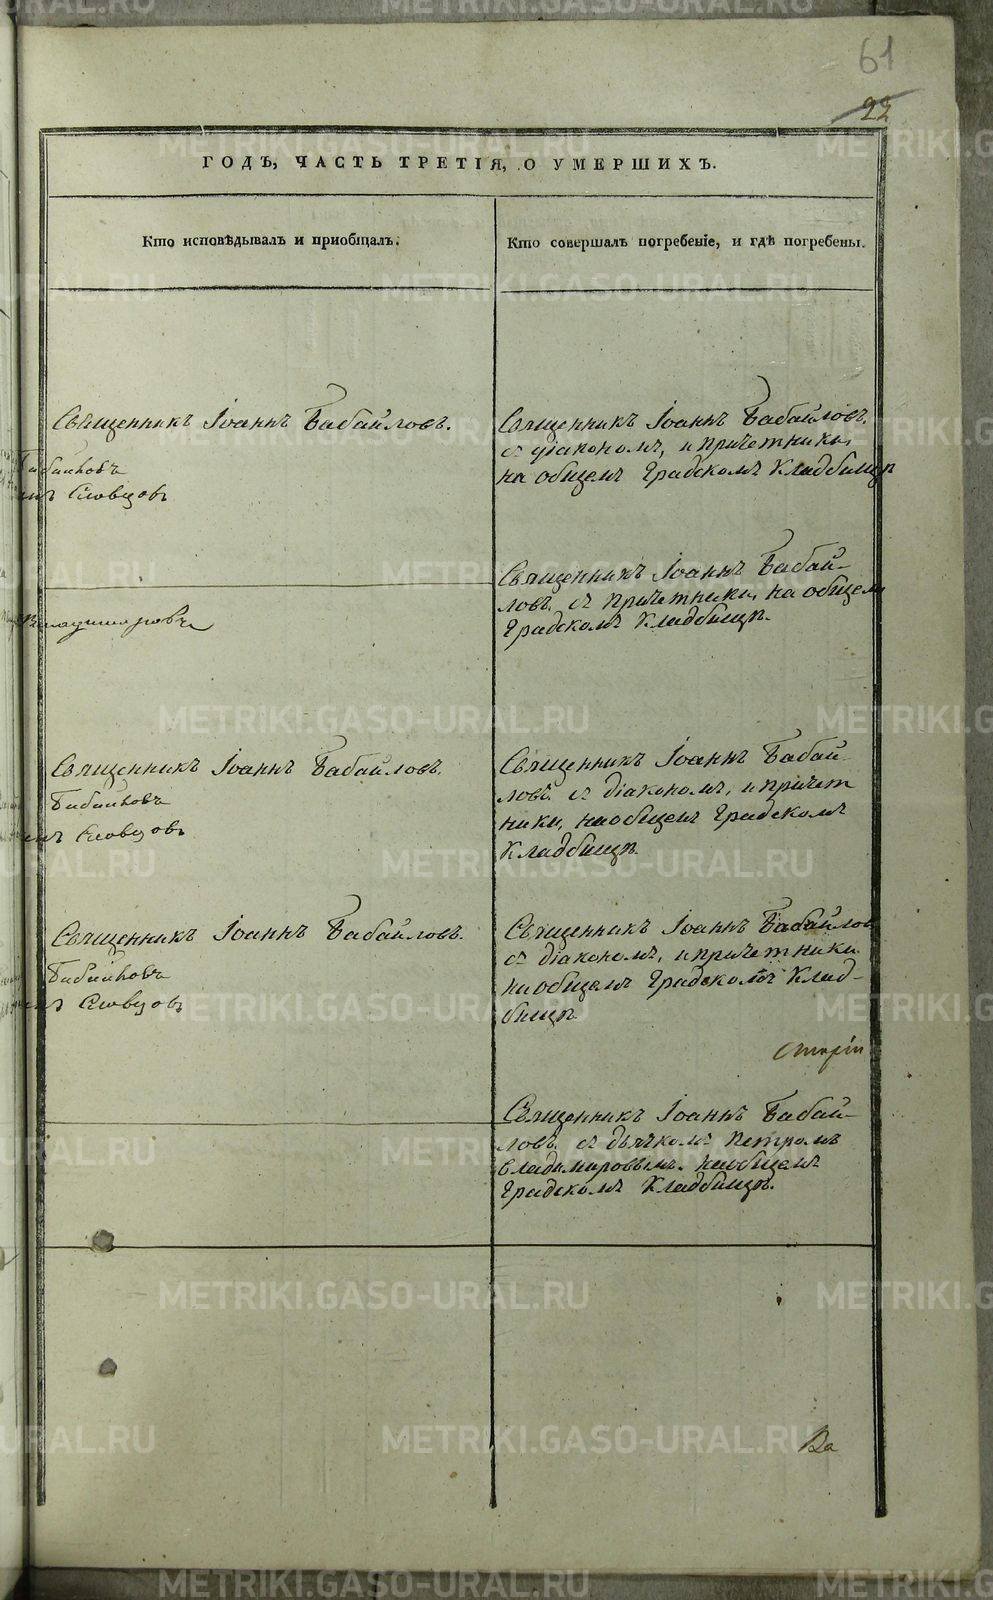 61
22
ГОДЪ, ЧАСТЬ ТРЕТІЯ, О УМЕРШИХЪ.
Кто исповѣдывалъ и пріобщалъ.
Кто совершалъ погребеніе, и гдѣ погребены.
Священникъ Іоаннъ Бабайловъ.
Словцовъ
Священникъ Іоаннъ Бабайловъ.
съ діакономъ, и причетники,
на общемъ Градскомъ Кладбищѣ
Священникъ Іоаннъ Бабай-
ловъ. съ причетники, на общемъ
Градскомъ Кладбищѣ.
Священникъ Іоаннъ Бабайловъ.
Словцовъ
Священникъ Іоаннъ Бабай-
ловъ. съ діакономъ, и причет
ники, на общемъ Градскомъ
Кладбищѣ.
Священникъ Іоаннъ Бабайловъ.
Словцовъ
Священникъ Іоаннъ Бабайловъ
съ діакономъ, и причетники
на общемъ Градскомъ Клад-
бищѣ.
Священникъ Іоаннъ Бабай-
ловъ. съ дьячкомъ Петромъ
Владимировымъ. на общемъ
Градскомъ Кладбищѣ.
METRIKI.GASO-URAL.RU